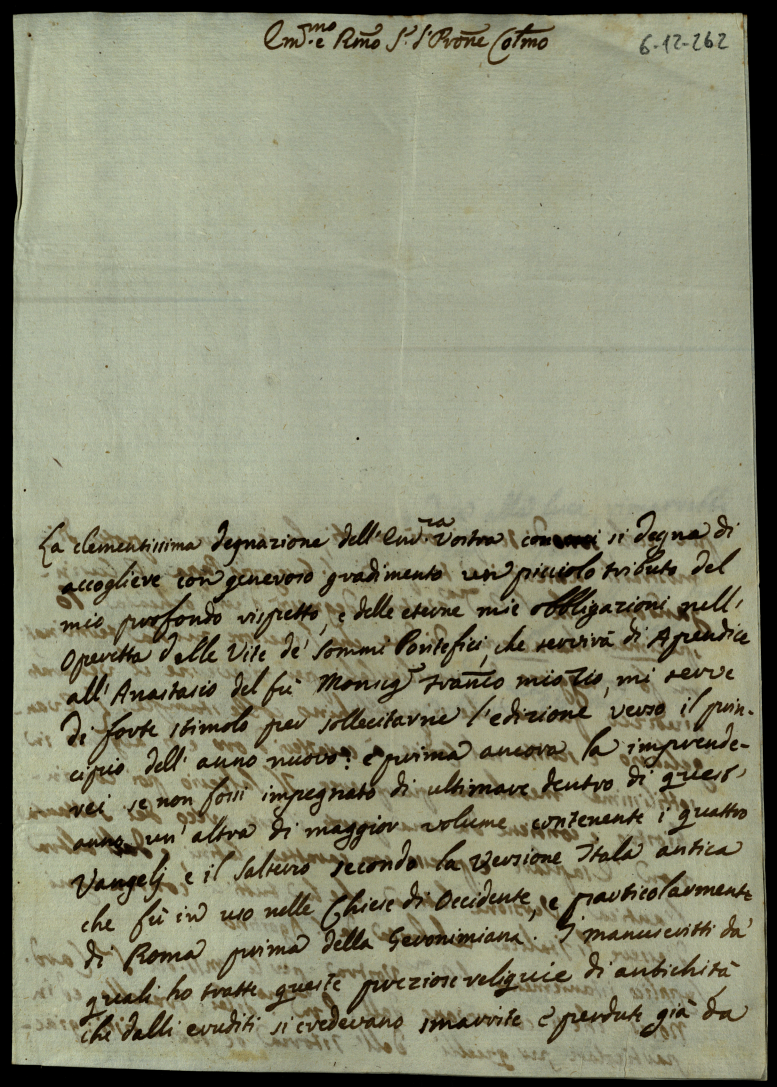 Em.mo e Rmo Sr. Sr. Prone Colmo
6-12-262
La clementissima degnazione dell' Em.ra Vostra con si degna di
accogliere con generoso gradimento un picciolo tributo del
mio profondo rispetto, e delle eterne mie obbligazioni nell'
Operetta delle Vite de' Sommi Pontefici, che servirà di Apendice
all' Anastasio del fù Monsigr Franco mio Zio, mi serve
di forte stimolo per sollecitarne l'edizione verso il prin-
cipio dell' anno nuovo: e prima ancora la imprende-
rei se non fossi impegnato di ultimare dentro di quest'
anno un' altra di maggior volume contenente i quattro
Vangelj e il Salterio secondo la Versione Itala antica
che fù in uso nelle Chiese di Occidente, e particolarmente
di Roma prima della Geronimiana. I manuscritti da'
quali ho tratte queste preziose reliquie di antichità,
che dalli eruditi si credevano smarrite e perdute già da